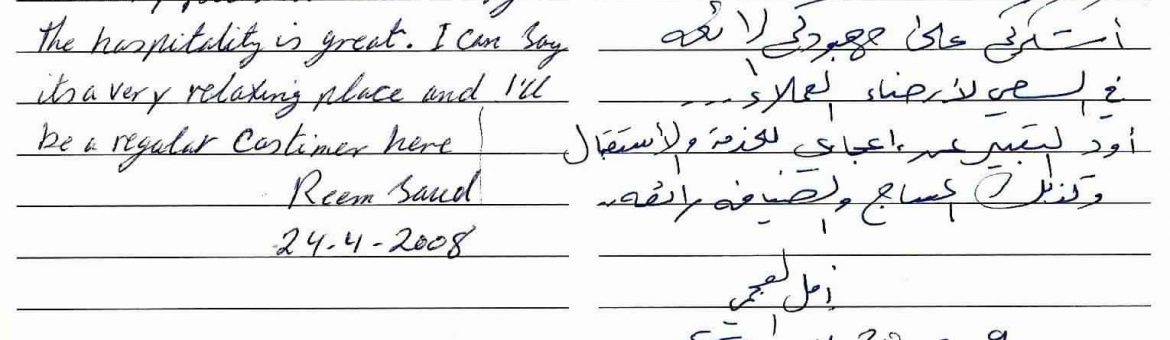 the hospitality is great. I can say
its a very relaxing place and I'll
be a regular Costimer here
Reem Saud
24-4-2008
أشكركم على جهودكم الرائعه
في السعي لأرضاء العملاء...
أود التعبير عن اعجابي للخدمة والأستقبال
وكذلك المساج والضيافه رائعه..
أمل العجمي